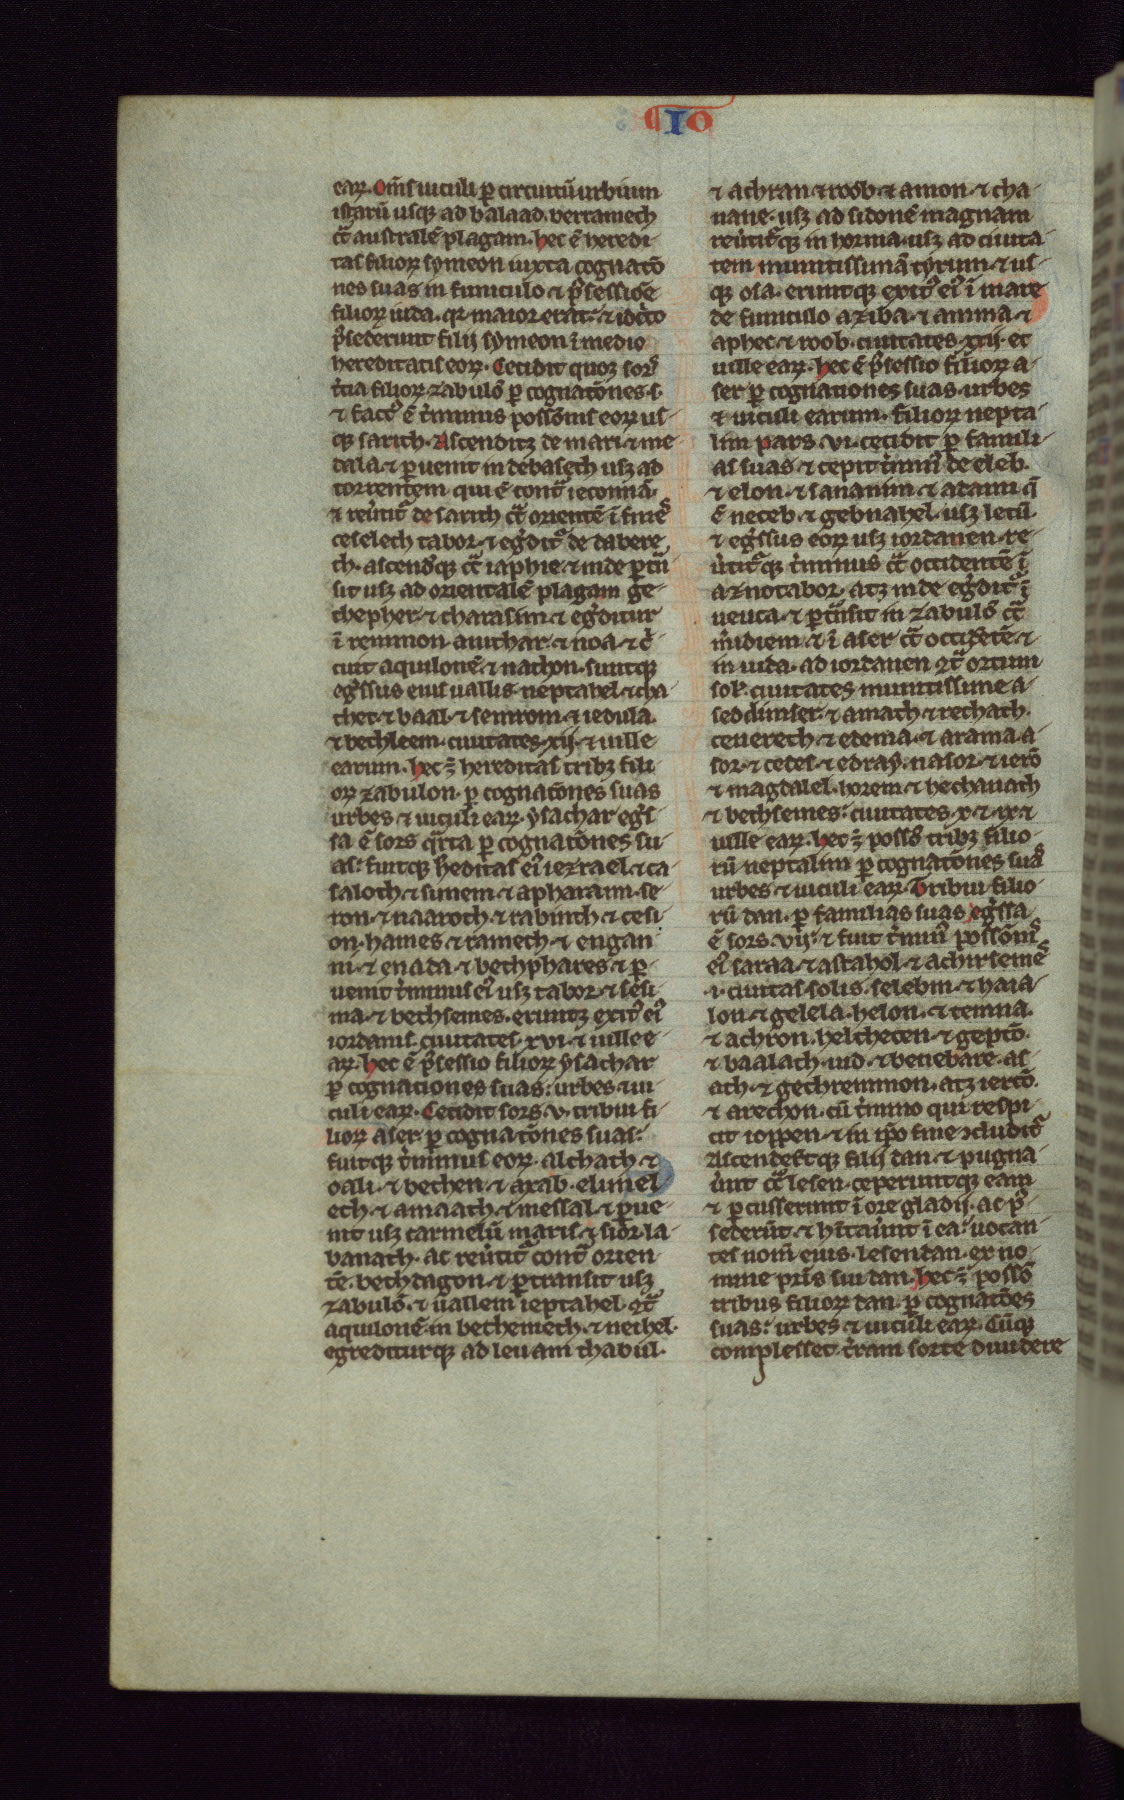 IO
eaꝝ. Om̄s uiculi ꝑ circuitū urbium
istarū usqꝫ ad balaad. berramech
cͣ australē plagam. hec ē heredi-
tas filioꝝ symeon iuxta cognatō
nes suas in funiculo ⁊ p̄sessiōe
filioꝝ iuda. qꝛ maior erat. ⁊ idcͦo
p̄sederunt filij symeon ī medio
hereditatis eoꝝ. Cecidit quoꝫ sorˢ
t̄cia filioꝝ zabulō ꝑ cognatōnes s.
⁊ factꝰ ē t̄minus possōnis eoꝝ us-
qꝫ sarith. Ascenditꝫ de mari ⁊ me
dala ⁊ ꝑuenit in debasech usꝫ ad
torrentem qui ē contͣ ieconnā.
⁊ reūtitͬ de sarith cͣ orientē ī fineˢ
ceselech tabor ⁊ egͥditͬ de dabere
th. ascendͥqꝫ cͣ iaphie. ⁊ inde ꝑtͣn
sit usꝫ ad orientalē plagam ge-
thepher ⁊ thacasim ⁊ egͥditur
ī remmon amthar ⁊ noa ⁊ cͥ
cuit aquilonē ⁊ nathon. suntqꝫ
egͥssus eius uallis neptahel ⁊ cha
thet ⁊ baal ⁊ semrom ⁊ iedula.
⁊ bethleem. ciuitates xij. ⁊ uille
earum. hec ē hereditas tribꝫ fili
oꝝ zabulon. ꝑ cognatōnes suas
urbes ⁊ uiculi eaꝝ. ysachar egͥs
sa ē sors qͣrta ꝑ cognatōnes su-
as. fuitqꝫ h̄editas eiꝰ iezrael ⁊ ca
saloth ⁊ sunem ⁊ apharaim. se-
ron ⁊ naaroth ⁊ rabinth ⁊ cesi-
on. hames ⁊ ramech ⁊ engan
ni. ⁊ enada ⁊ bethphares ⁊ ꝑ-
uenit t̄minus eiꝰ usꝫ tabor ⁊ sesi-
ma ⁊ bethsemes. eruntꝫ exitꝰ eiꝰ
iordanis. ciuitates xvi. ⁊ uille e
aꝝ. hec ē p̄sessio filioꝝ ysachar
ꝑ cognationes suas. urbes ⁊ ui-
culi eaꝝ. Cecidit sors v. tribui fi-
lioꝝ aser ꝑ cognatōnes suas.
fuitqꝫ t̄minus eoꝝ. alchath ⁊
oali. ⁊ bethen ⁊ axab. elimel
ech ⁊ amaath ⁊ messal ⁊ ꝑue-
nit usꝫ carmelū maris ⁊ sior. la-
banath. ac reūtitͬ contͣ orien-
tē. bethdagon ⁊ ꝑtransit usꝫ
zabulō. ⁊ uallem ieptahel. cͣ
aquilonē in bethemech ⁊ neihel.
egrediturqꝫ ad leuam thabul.
⁊ achran ⁊ roob ⁊ amon ⁊ cha-
nane. usꝫ ad sidonē magnam
reūtitͬqꝫ in horma usꝫ ad ciuita-
tem munitissimā tyrum ⁊ us-
qꝫ osa. eruntqꝫ exitꝰ eiꝰ ī mare
de funiculo aziba ⁊ amma ⁊
aphec ⁊ roob. ciuitates xxij. et
uille eaꝝ. hec ē p̄sessio filioꝝ a-
ser ꝑ cognationes suas. urbes
⁊ uiculi earum. filioꝝ nepta-
lim pars vi. cecidit ꝑ famili-
as suas ⁊ cepit t̄minꝰ de eleb.
⁊ elon. ⁊ sananim ⁊ adami q̄
ē neceb. ⁊ gebnahel. usꝫ lecū.
⁊ egͥssus eoꝝ usꝫ iordanen. re-
ūtitͬqꝫ t̄minus cͣ occidentē ī
aznotabor. atꝫ inde egͥditͬ ī
ueuca. ⁊ ꝑtͣnsit in zabulō cͣ
mͥdiem ⁊ ī aser cͣ occidētē ⁊
in iuda. ad iordanen cͣ ortum
solˢ. ciuitates munitissime a-
seddimser. ⁊ amath ⁊ rechath.
cenereth ⁊ edema ⁊ arama a-
sor. ⁊ cedes ⁊ edray. nasor ⁊ ierō
⁊ magdalel. horem ⁊ bethanath
⁊ bethsemes. ciuitates x. ⁊ ix. ⁊
uille eaꝝ. hec ē possͦ tribꝫ filio-
rū neptalim ꝑ cognatōnes suaˢ
urbes ⁊ uiculi eaꝝ. Tribui filio-
rū dan. ꝑ familias suas egͥssa
ē sors. vij. ⁊ fuit t̄minꝰ possōniˢ
eiꝰ saraa ⁊ astahol ⁊ achirsemeˢ
.i. ciuitas solis. selebin ⁊ haia-
lon ⁊ gelela. helon. ⁊ temna.
⁊ achron. helthecen ⁊ geptō.
⁊ baalach. iud. ⁊ benebare. as-
ath ⁊ gethremmon. atꝫ iercō.
⁊ arechon. cū t̄mino qui respi-
cit ioppen ⁊ in ip̄o fine ɔcluditͬ
Ascenderͭqꝫ filij dan ⁊ pugna
ūnt cͣ lesen. ceperuntqꝫ eam
⁊ ꝑcusserunt ī ore gladij. ac p̄-
sederūt ⁊ hītaūnt ī ea. uocan-
tes nom̄ eius. lesendan. ex no-
mine pr̄is sui dan. hec ē possō
tribus filioꝝ dan. ꝑ cognatōes
suas. urbes ⁊ uiculi eaꝝ. Cūqꝫ
complesset t̄ram sorte diuidere